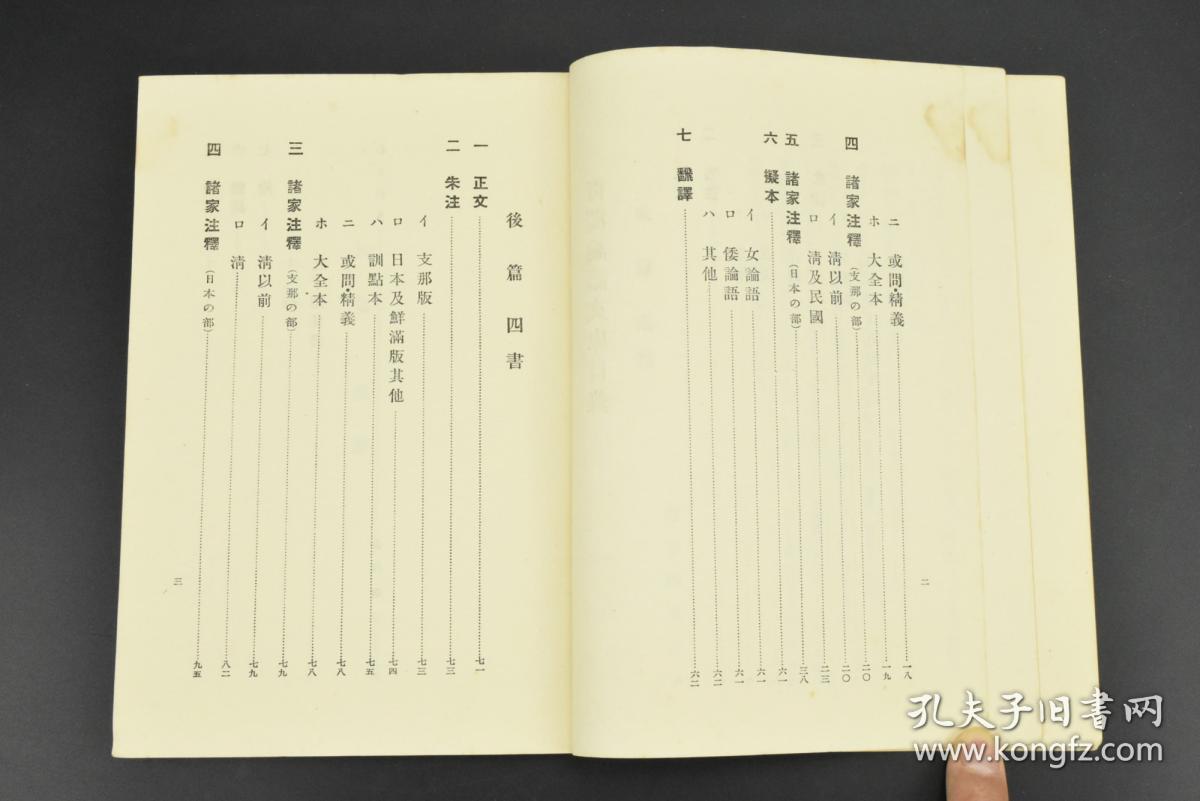 ニ 或問・精義……一八
ホ 大全本……一九
四 諸家注釋(支那の部)……二〇
イ 淸以前……二〇
ロ 淸及民國……二三
五 諸家注釋(日本の部)……三八
六 擬本……六一
イ 女論語……六一
ロ 倭論語……六一
ハ 其他……六二
七 飜譯……六二
二
後篇 四書
一 正文……七一
二 朱注……七三
イ 支那版……七三
ロ 日本及鮮滿版其他……七四
ハ 訓點本……七五
ニ 或問・精義……七八
ホ 大全本……七八
三 諸家注釋(支那の部)……七九
イ 淸以前……七九
ロ 淸……八二
四 諸家注釋(日本の部)……九五
三
孔夫子旧书网
www.kongfz.com